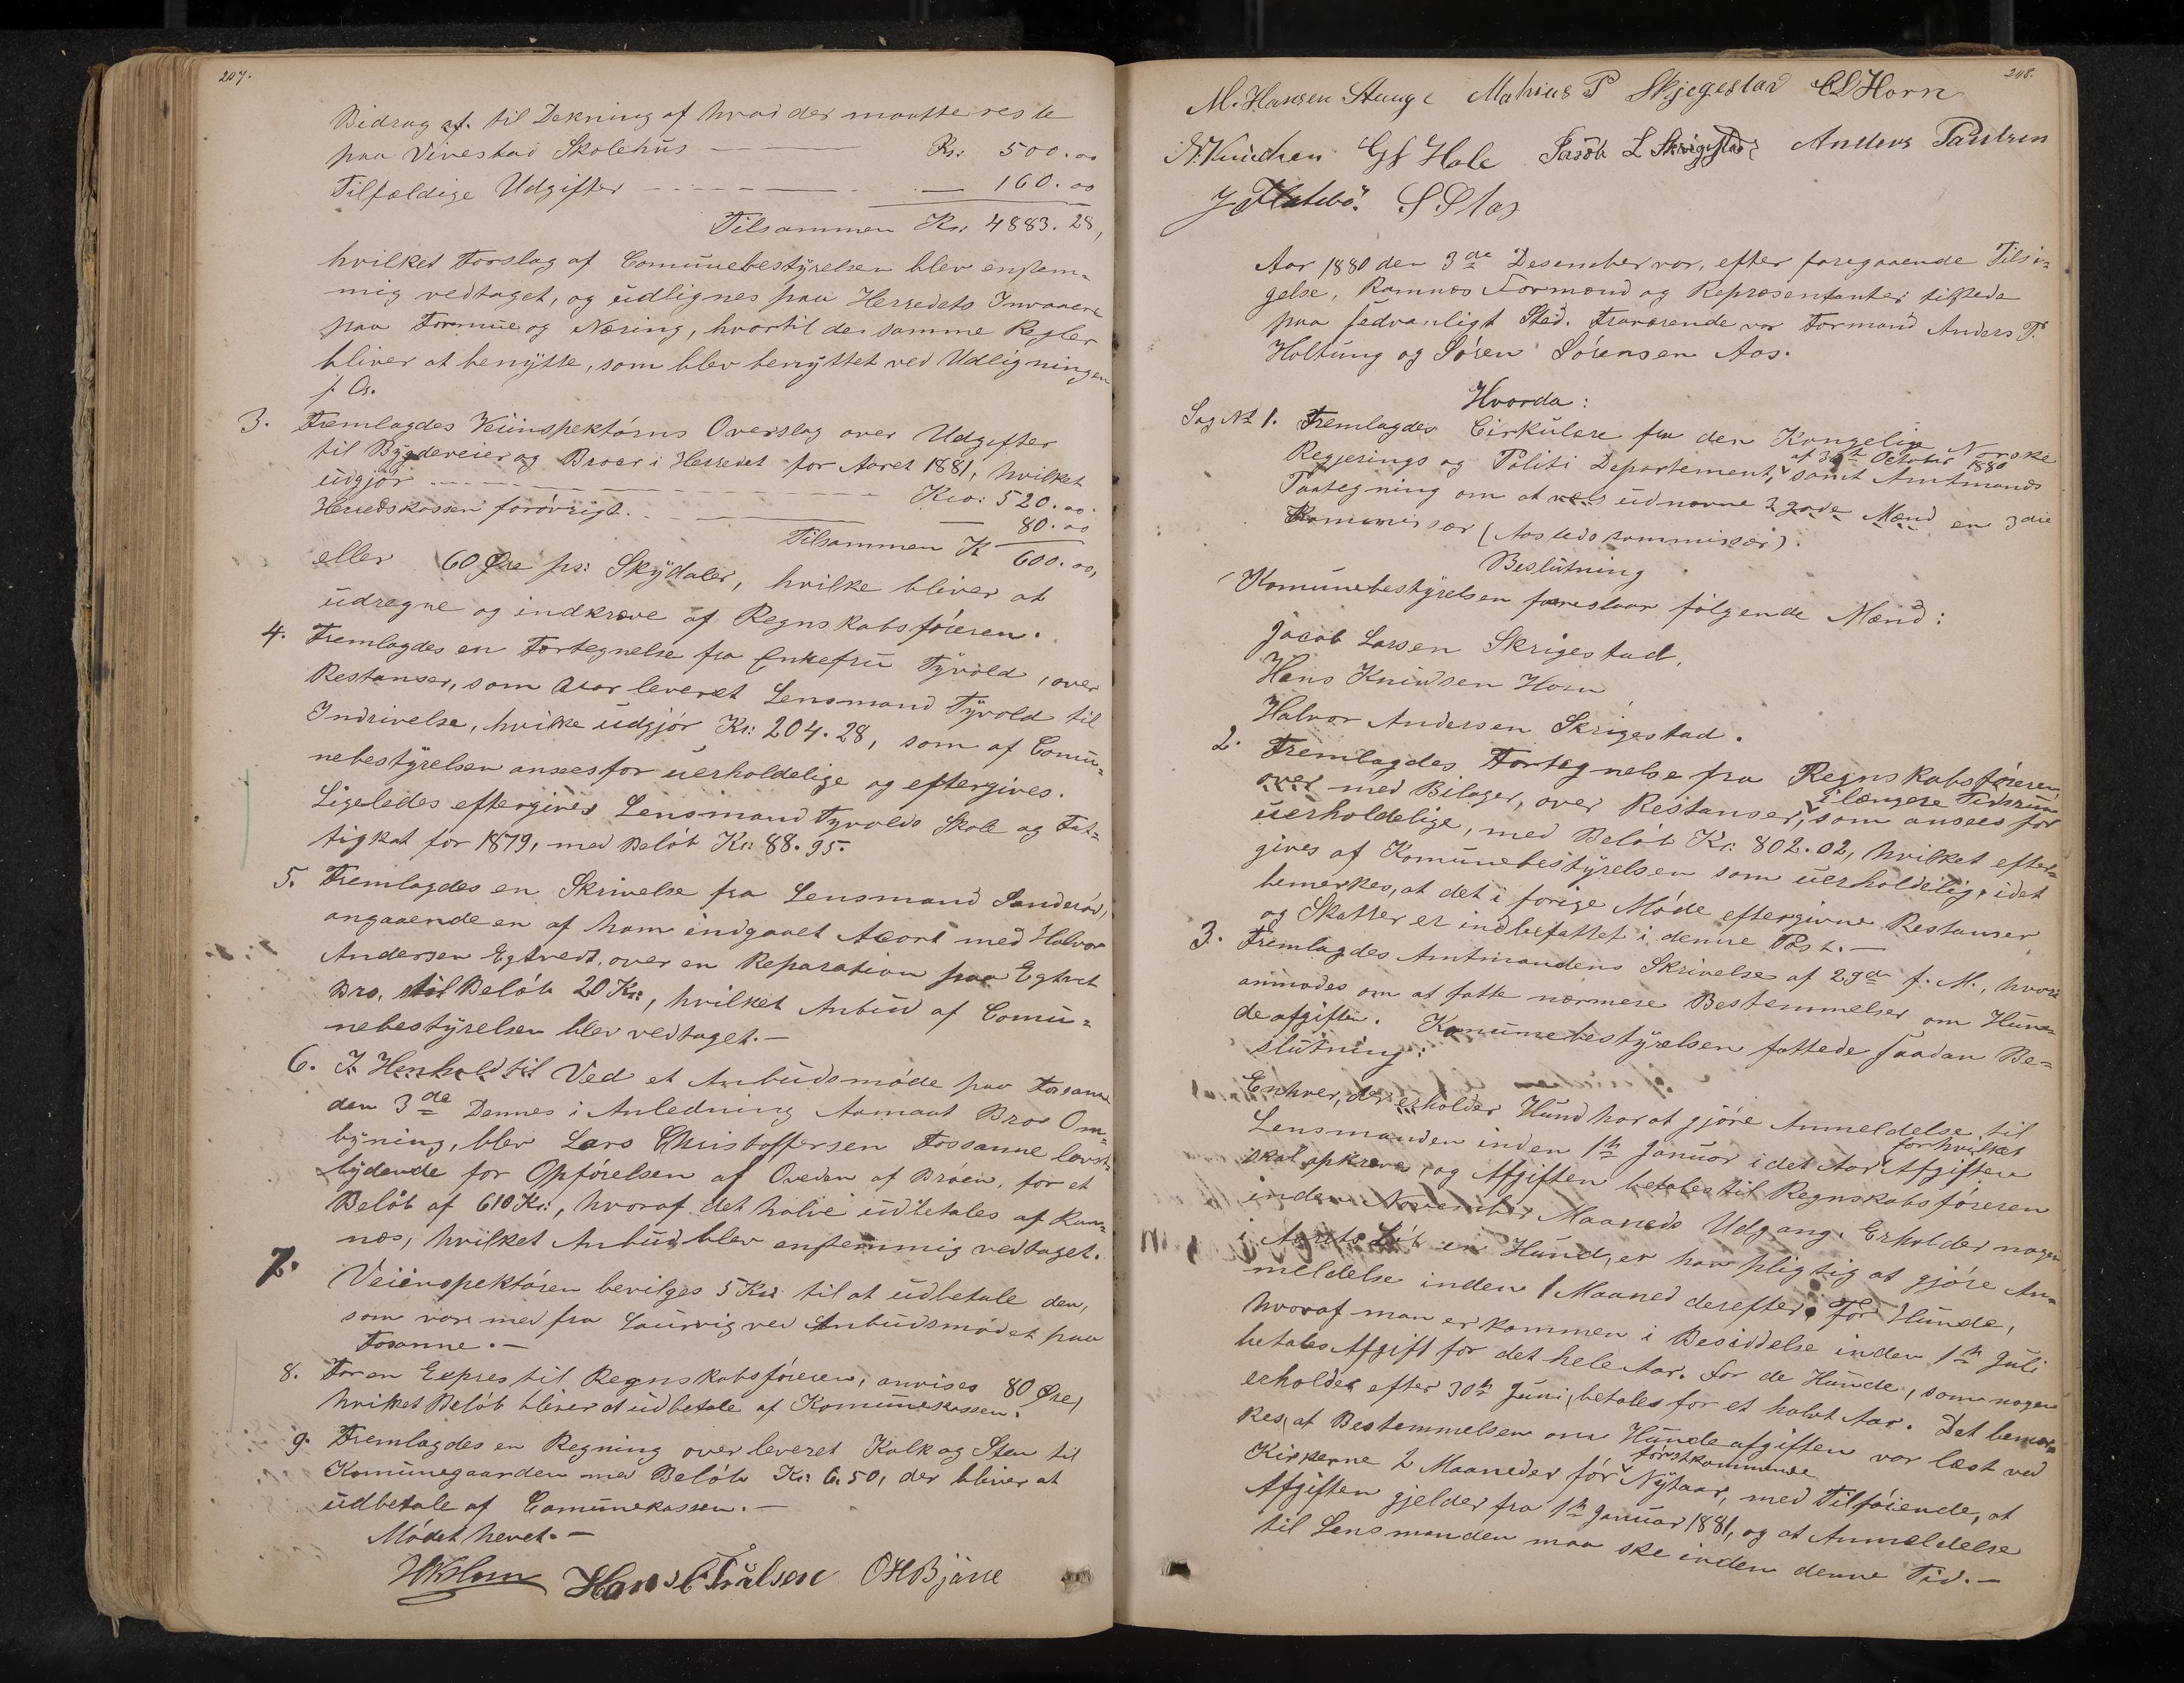 207.
Bidrag af. til Dekning af hvad der maatte reste
paa Vivestad Skolehus Kr: 500.00
Tilfældige Udgifter 160.00
Tilsammen Kr: 4883.28,
hvilket Forslag af Comunebestyrelsen blev enstem-
mig vedtaget, og udlignes paa Herredets Invaanere
paa Formue og Næring, hvortil de samme Regler
bliver at benytte, som blev benyttet ved Udligningen
f. A.
3. Fremlagdes Veiinspektörns Overslag over Udgifter
til Bygdeveier og Broer i Herredet for Aaret 1881, hvilket
udgjör Kro: 520.00.
Herredskassen forövrigt. 80.00
Tilsammen K 600.00,
eller 60 Øre pr: Skydaler, hvilke bliver at
udregne og indkræve af Regnskabsföreren.
4. Fremlagdes en Fortegnelse fra Enkefru Tyvold, over
Restanser, som var leveret Lensmand Tyvold til
Indrivelse, hvilke udgjör Kr: 204.28, som af Comu-
nebestyrelsen ansees for uerholdelige og eftergives.
Ligeledes eftergives Lensmand Tyvolds Skole og Fat-
tigskat for 1879, med Belöb Kr: 88.95.
5. Fremlagdes en Skrivelse fra Lensmand Sanderöd,
angaaende en af ham indgaaet Acort med Halvor
Andersen Egtvedt, over en Reparation paa Egtvet
Bro, til Belöb 20 Kr:, hvilket Anbud af Comu-
nebestyrelsen blev vedtaget.—
6. I Henhold til Ved et Anbudsmöde paa Fossanne
den 3de Dennes i Anledning Aamaat Bros Om-
bygning, blev Lars Christoffersen Fossanne lavst-
bydende for Opförelsen af Overen af Bröen, for et
Belöb af 610 Kr:, hvoraf det halve udbetales af Ram-
næs, hvilket Anbud blev enstemmig vedtaget.
7. Veiinspektören bevilges 5 Kr: til at udbetale den,
som var med fra Laurvig ved Anbudsmödet paa
Fosanne.—
8. For en Expres til Regnskabsföreren, anvises 80 Øre,
hvilket Belöb bliver at udbetale af Komunekassen.
9. Fremlagdes en Regning over leveret Kalk og Sten til
Komunegaarden med Belöb Kr: 6.50, der bliver at
udbetale af Comunekassen.—
Mödet hevet.—
Hans C Paulsen OHBjärre
208.
M. Hansen Stange Mathias P Skjegestad CLHorn
N. Knudsen GJ Hale Jacob L Skrigestad Anders Paulsen
J Flatebö. S S Aas
Aar 1880 den 3de Desember var, efter foregaaende Tilsi-
gelse, Ramnæs Formænd og Repræsentanter tilstede
paa sedvanligt Sted. Fraværende var Formand Anders P.
Holtung og Sören Sörensen Aas.
Hvorda:
Sag No 1. Fremlagdes Cirkulære fra den Kongelige Norske
Regjerings og Politi Departement, af 30te October 1880 samt Amtmands
Paategning om at udnævne 2 gode Mænd en 3die
Kommissær (Aastedskommissær).
Beslutning
Komunebestyrelsen foreslaar følgende Mænd:
Jacob Larsen Skrigestad,
Hans Knudsen Horn
Halvor Andersen Skrigestad.
2. Fremlagdes Fortegnelse fra Regnskabsföreren,
over med Bilager, over Restanser, i længere Tidsrum som ansees for
uerholdelige, med Belöb Kr: 802.02, hvilket efter-
gives af Komunebestyrelsen som uerholdelig, idet
bemerkes, at det i forige Möde eftergivne Restanser
og Skatter er indbefattet i denne Post.—
3. Fremlagdes Amtmandens Skrivelse af 29de f. M., hvori
anmodes om at fatte nærmere Bestemmelser om Hun-
deafgiften. Komunebestyrelsen fattede saadan Be-
slutning:
Enhver, der erholder Hund har at gjöre Anmeldelse til
Lensmanden inden 1te Januar i det Aar, for hvilket Afgiften
skal opkræves, og Afgiften betales til Regnskabsföreren
inden November Maaneds Udgang. Erholder nogen
i Aarets Löb en Hund, er han pligtig at gjöre An-
meldelse inden 1 Maaned derefter. For Hunde,
hvoraf man er kommen i Besiddelse inden 1te Juli
betales Afgift for det hele Aar. For de Hunde, som nogen
erholder efter 30te Juni, betales for et halvt Aar. Det bemær-
kes, at Bestemmelsen om Hundeafgiften var læst ved
Kirkerne 2 Maaneder för förstkommende Nytaar, med Tilföiende, at
Afgiften gjelder fra 1te Januar 1881, og at Anmeldelse
til Lensmanden maa ske inden denne Tid.—